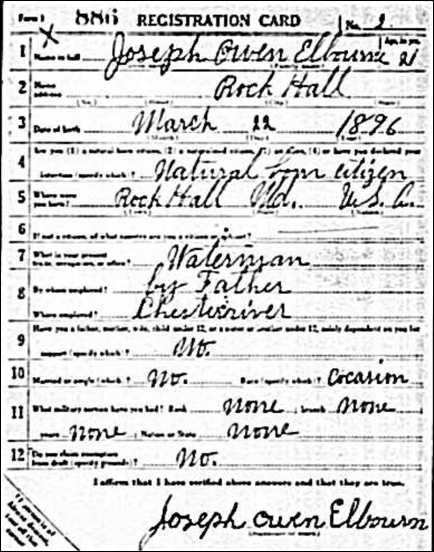 Form 1 886 REGISTRATION CARD No. 2
X
1 Name in full Joseph Owen Elbourne Age, in yrs. 21
2 Home address Rock Hall
3 Date of birth March 22 1896
Are you (1) a natural born citizen, (2) a naturalized citizen, (3) an alien, (4) or have you declared your
4 intention (specify which)? Natural born citizen
5 Where were you born? Rock Hall Md. U. S. A.
6 If not a citizen, of what country are you a citizen or subject?
7 What is your present trade, occupation, or office? Waterman
8 By whom employed? by Father
Where employed? Chesterriver
9 Have you a father, mother, wife, child under 12, or a sister or brother under 12, solely dependent on you for
support (specify which)? No.
10 Married or single (which)? No. Race (specify which)? Cocasion
11 What military service have you had? Rank None branch None
years None Nation or State None
12 Do you claim exemption from draft (specify grounds)? No.
I affirm that I have verified above answers and that they are true.
Joseph Owen Elbourn